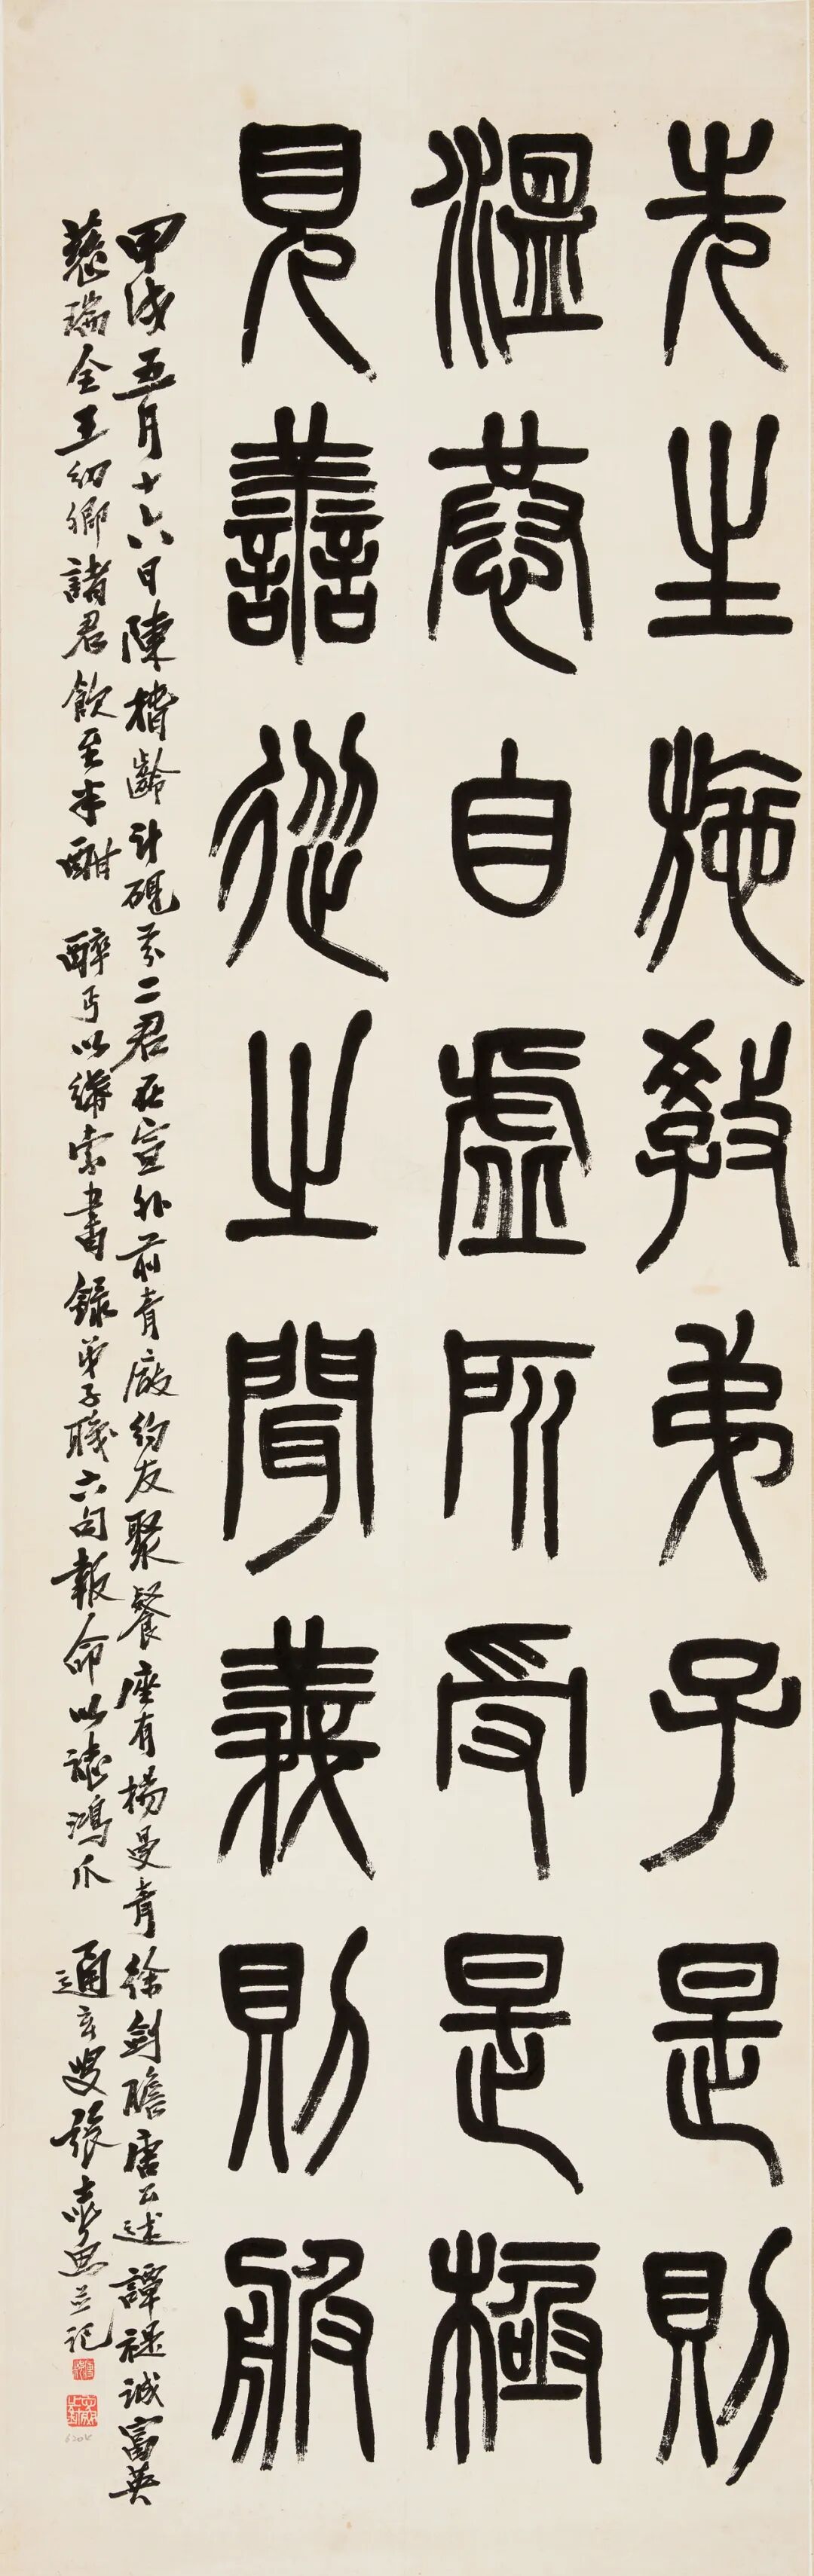 先生施教弟子是則
溫恭自虛所受是極
見譱從之聞義則服
甲戌五月十六日陳楷齡計硯芬二君在宣外前青廠約友聚餐座有楊曼青徐劍膽唐公述譚誠富英
瑞全王幼卿諸君飲至半酣醉丐以縑索書錄弟子職六句報命以誌鴻爪通玄叟張壽并記